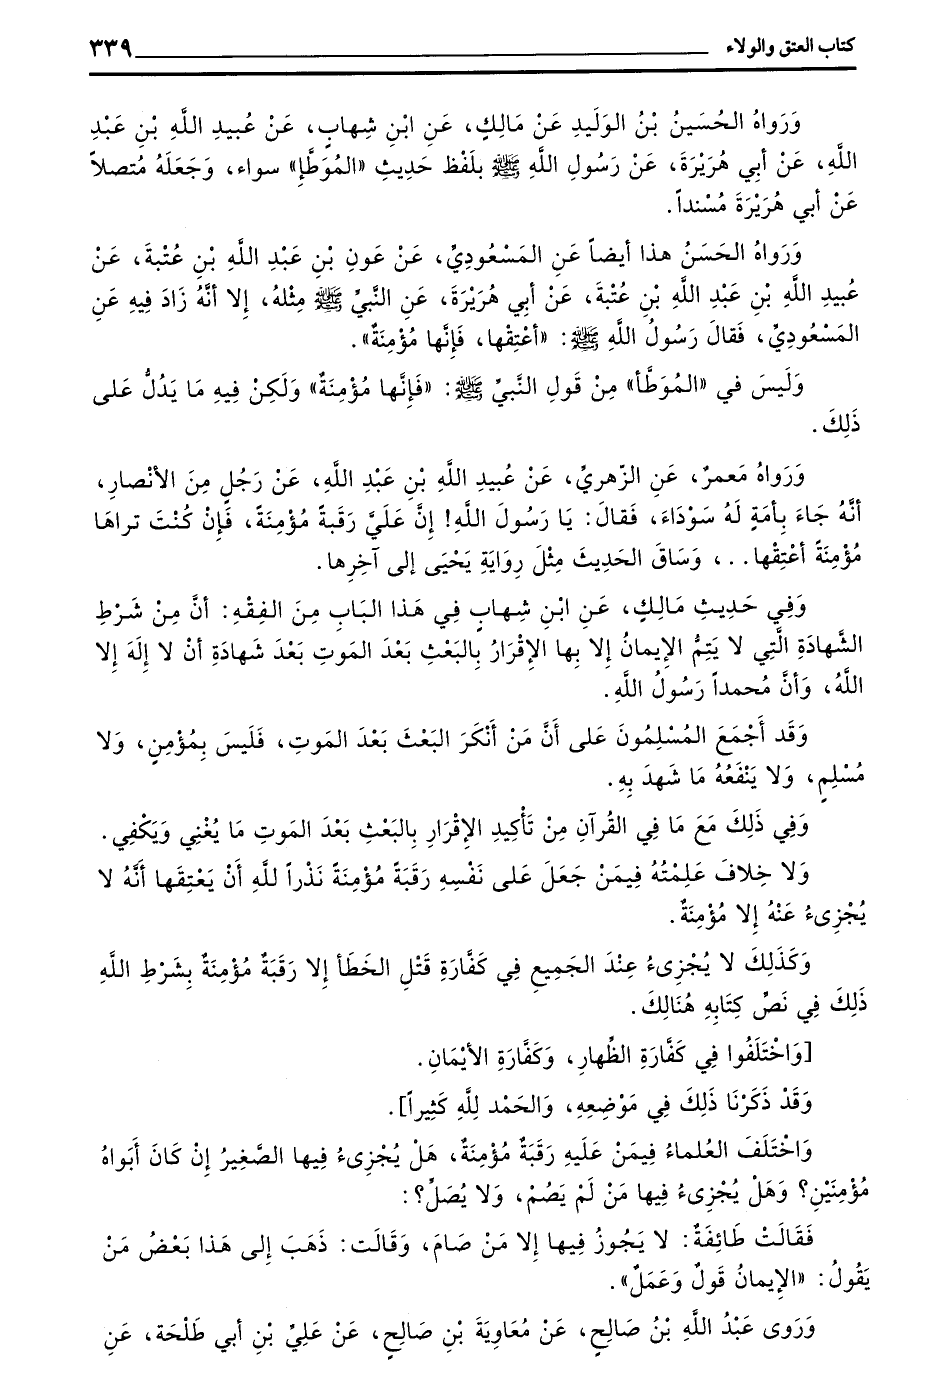 كتاب العتق والولاء ٣٣٩
وَرَواهُ الحُسَينُ بْنُ الوَليدِ عَنْ مَالِكٍ، عَنِ ابْنِ شِهابٍ، عَنْ عُبيدِ اللَّهِ بْنِ عَبْدِ
اللَّهِ، عَنْ أبي هُرَيْرَةَ، عَنْ رَسُولِ اللَّهِ ﷺ بلَفْظِ حَدِيثِ «المُوَطَّإ» سواء، وَجَعَلَهُ مُتصلاً
عَنْ أبي هُرَيْرَةَ مُسْنداً.
وَرَواهُ الحَسَنُ هذا أيضاً عَنِ المَسْعُودِيِّ، عَنْ عَونِ بْنِ عَبْدِ اللَّهِ بْنِ عُتْبةَ، عَنْ
عُبيدِ اللَّهِ بْنِ عَبْدِ اللَّهِ بْنِ عُتْبَةَ، عَنْ أبِي هُرَيْرَةَ، عَنِ النَّبِيِّ ﷺ مِثْلهُ، إلا أنَّهُ زَادَ فِيهِ عَنِ
المَسْعُودِيِّ، فَقالَ رَسُولُ اللَّهِ ﷺ: «أعْتِقْها، فَإنَّها مُؤْمِنَةٌ».
وَلَيسَ في «المُوَطَّأ» مِنْ قَولِ النَّبيِّ ﷺ: «فَإنَّها مُؤْمِنَةٌ» وَلَكِنْ فِيهِ مَا يَدُلُّ عَلى
ذَلِكَ.
وَرَواهُ مَعمرٌ، عَنِ الزّهريِّ، عَنْ عُبيدِ اللَّهِ بْنِ عَبْدِ اللَّهِ، عَنْ رَجُلٍ مِنَ الأنْصارِ،
أنَّهُ جَاءَ بِأمَةٍ لَهُ سَوْدَاءَ، فَقالَ: يَا رَسُولَ اللَّهِ! إنَّ عَلَيَّ رَقَبةً مُؤْمِنَةً، فَإنْ كُنْتَ تراهَا
مُؤْمِنَةً أعْتِقْها...، وَسَاقَ الحَدِيثَ مِثْلَ رِوايَةِ يَحْيَى إلى آخِرِها.
وَفِي حَدِيثِ مَالِكٍ، عَنِ ابْنِ شِهابٍ فِي هَذا البَابِ مِنَ الفِقْهِ: أنَّ مِنْ شَرْطِ
الشَّهادَةِ الَّتِي لا يَتِمُّ الإيمانُ إلا بِها الإقْرارُ بِالبَعْثِ بَعْدَ المَوتِ بَعْدَ شَهادَةِ أنْ لا إلَهَ إلا
اللَّهُ، وَأنَّ مُحمداً رَسُولُ اللَّهِ.
وَقَد أَجْمَعَ المُسْلِمُونَ عَلى أَنَّ مَنْ أنْكَرَ البَعْثَ بَعْدَ المَوتِ، فَلَيسَ بِمُؤْمِنٍ، وَلا
مُسْلِمٍ، وَلا يَنْفَعُهُ مَا شَهدَ بِهِ.
وَفِي ذَلِكَ مَعَ مَا فِي القُرآنِ مِنْ تَأْكِيدِ الإقْرارِ بِالبَعْثِ بَعْدَ المَوتِ مَا يُغْنِي وَيَكْفِي.
وَلا خِلافَ عَلِمْتُهُ فِيمَنْ جَعَلَ عَلى نَفْسِهِ رَقَبةً مُؤْمِنَةً نَذْراً للَّهِ أَنْ يَعْتِقَها أنَّهُ لا
يُجْزِىءُ عَنْهُ إلا مُؤْمِنَةٌ.
وَكَذَلِكَ لا يُجْزِىءُ عِنْدَ الجَميعِ فِي كَفَّارَةِ قَتْلِ الخَطَأ إلا رَقَبَةٌ مُؤْمِنَةٌ بِشَرْطِ اللَّهِ
ذَلِكَ فِي نَصِّ كِتَابِهِ هُنَالِكَ.
[وَاخْتَلَفُوا فِي كَفَّارَةِ الظِّهارِ، وَكَفَّارَةِ الأيْمَانِ.
وَقَدْ ذَكَرْنَا ذَلِكَ فِي مَوْضِعِهِ، وَالحَمْد لِلَّهِ كَثِيراً].
وَاخْتَلَفَ العُلماءُ فِيمَنْ عَلَيهِ رَقَبَةٌ مُؤْمِنَةٌ، هَلْ يُجْزِىءُ فِيها الصَّغِيرُ إنْ كَانَ أَبَواهُ
مُؤْمِنَيْنِ؟ وَهَلْ يُجْزِىءُ فِيها مَنْ لَمْ يَصُمْ، وَلا يُصَلِّ؟:
فَقَالَتْ طَائِفَةٌ: لا يَجُوزُ فِيها إلا مَنْ صَامَ، وَقَالَت: ذَهَبَ إلى هَذا بَعْضُ مَنْ
يَقُولُ: «الإيمانُ قَولٌ وَعَمَلٌ».
وَرَوى عَبْدُ اللَّهِ بْنُ صَالِحٍ، عَنْ مُعَاوِيَةَ بْنِ صَالِحٍ، عَنْ عَلِيِّ بْنِ أبي طَلْحَة، عَنِ